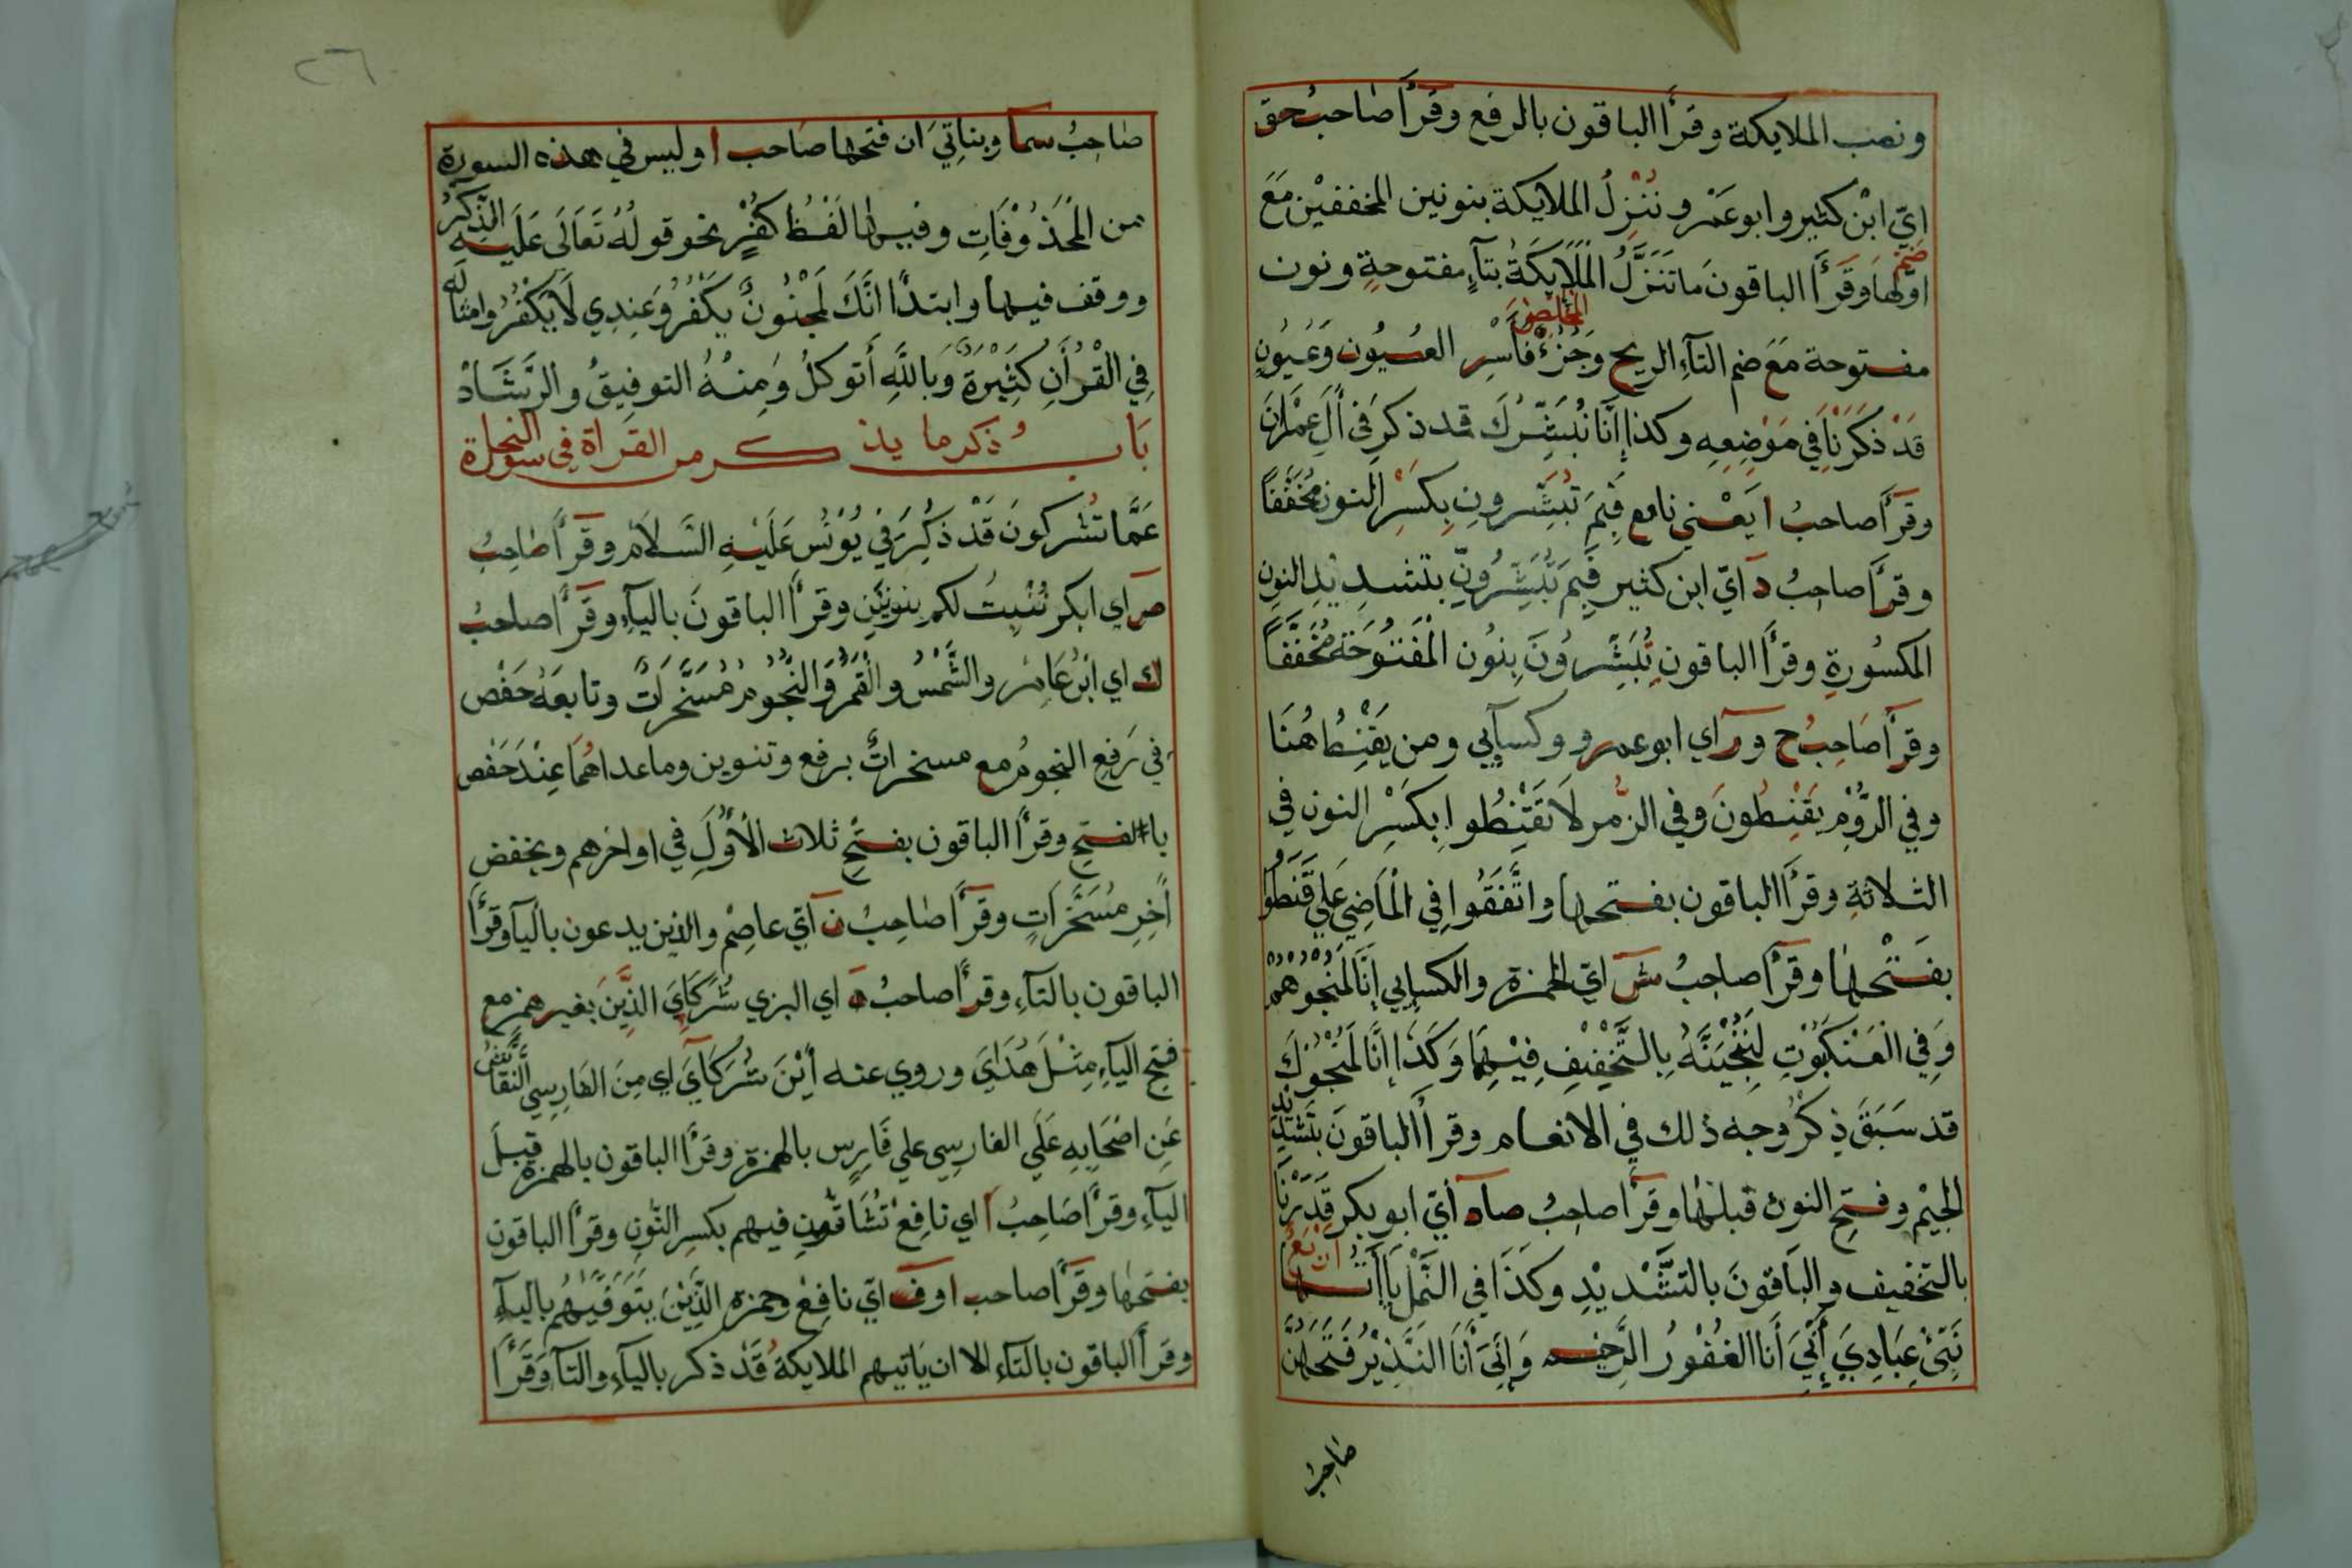 ونصب الملايكة وقرأ الباقون بالرفع وقرأ صاحبُ حق
ايّ ابْن كثير وابو عَمْر وننزلُ الملايكة بنونين المخففيْن مَعَ
ضم
اوّلها وقَرَأَ الباقونَ ما تَنَزَّلُ الْمَلَايِكَةُ بتآءٍ مفتوحةٍ ونون
المخلصين
مفتوحة مَعَ ضم التآءِ الريح وَجُزْءٌ فأَسْرِ العُيُون وَعُيُونٍ
قَدْ ذَكَرْنَا في مَوْضِعِه وكذا إِنَّا نُبَشِّرُكَ قد ذكر في أَلِ عِمْرَانَ
وقرَأَ صاحبُ ا يَعْني نافع فَبِمَ تُبَشِّرونِ بِكَسْرِ النون مُخَفَّفًا
وقرَأَ صاحِبُ د ايّ ابن كثير فَبِمَ تُبَشِّرُونِّ بتشديْدِ النون
المكسُورةِ وقرَأَ الباقون تُبَشِّرُونَ بِنُون الْمَفْتُوحَة مُخَفَّفًا
وقرَأَ صَاحِبُ ح ورَ اي ابو عمرو وكسآيي ومن يَقْنِطُ هُنَا
وفي الرُّوْمِ يَقْنِطُونَ وفي الزُّمر لَا تَقْنِطُوا بِكَسْرِ النون في
الثلاثةِ وقرَأَ الباقون بفتحها واتَّفَقُوا في الْمَاضِي عَلي قَنَطُوا
بفَتْحِها وقرَأَ صاحِبُ شَ ايّ الحمزة والكسايي إِنَّا لَمُنْجُوْهُمْ
وَفي الْعَنْكَبُوْتِ لَنُنْجِيَنَّهُ بِالتَّخْفِيْفِ فِيْهِمَا وَكَذَا إِنَّا لَمُنْجُوْكَ
قد سَبَقَ ذِكْرُ وجه ذلك في الانعام وقرأ الباقونَ بتشديد
الْجِيْمِ وفتحِ النون قبلها وقرَأ صاحِبُ صاد أيّ ابو بكر قَدَرْنَا
بالتخفيف والباقونَ بالتشْديْدِ وكَذَا في النَّمْلِ يَاأتها اربع
نَبِّئْ عِبَادِيَ أَنِّيَ أَنَا الغَفُوْرُ الرَّحِيْم وَإِنِّيَ أَنَا النَّذِيْرُ فَتَحَهُنَّ
صَاحِبُ
٢٦
صَاحِبُ سما وبناتِيَ ان فتحها صاحب ا وليس في هذه السورة
من الْمَحْذُوْفَاتِ وفيها لَفْظُ كُفْرٍ نحو قولُهُ تَعَالَى عَلَيْهِ الذِّكْرُ
ووقف فيها وابتدًا انَّكَ لَمَجْنُونٌ يَكْفُرُ وَعِنْدِي لَا يَكْفُرُ وامثاله
في الْقُرْأَنِ كَثِيْرَةٌ وَبِاللَّهِ أَتوكلُ وَمِنْهُ التوفِيقُ والرَّشَادْ
بَابُ ذكر ما يذكر من القراة في سورة النحل
عَمَّا تُشْركونَ قَدْ ذُكِرَ في يُوْنُسَ عَلَيْهِ السَّلَام وقرَأَ صَاحِبُ
صَ اي ابكر نُنْبِتُ لكم بنونَيْنِ وقرَأَ الباقونَ باليآءِ وقرَأَ صاحبُ
ك اي ابْنُ عَامِر والشَّمْسُ والْقَمَرُ والنُّجُومُ مُسَخَّرَاتٌ وتابعَهُ حَفْص
في رَفع النجومُ مع مسخراتٌ برفع وتنوين وماعداهُما عِنْدَ حَفْص
بالفتحِ وقرَأَ الباقون بفتحِ ثلاث الْأَوَّلِ في اواخرهم وبخفض
أخِرِ مُسَخَّرَاتٍ وقرَأَ صَاحِبُ نَ أيّ عاصِم والذين يدعون باليآ وقرَأَ
الباقون بالتآءِ وقرَأ صاحبُ هَ اي البزي شُرَكَايَ الذِّيَنَ بغير همز مع
فتح اليآءِ مِثْلَ هُدَايَ وروي عنه أَيْنَ شُرَكَآيَ اي مِنَ الفارسي النقاش
عَنِ اصْحَابِهِ عَلَي الفارسِي علي فَارِس بالهمزةِ وقَرَأَ الباقون بالهمزة قبل
اليآءِ وقرَأ صَاحِبُ أ اي نافِعْ تُشَاقُّونِ فيهم بكسر النُّونِ وقرَأَ الباقون
بفتحِها وقرَأَ صاحب ا وفَ ايّ نافِعْ وحمزة الَّذِيْنَ يَتَوَفَّيْهُمْ باليآءِ
وقرَأَ الباقون بالتآءِ الا ان يَاتيهم الملايكةُ قَدْ ذكر باليآءِ والتآ وَقَرَأَ